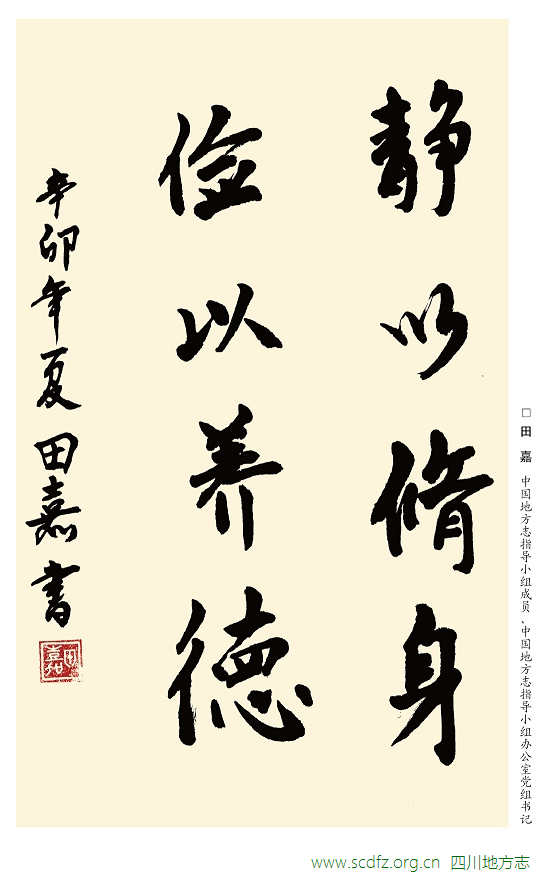 静以脩身
俭以养德
辛卯年夏田嘉书
田嘉
□田 嘉 中国地方志指导小组成员、中国地方志指导小组办公室党组书记
www.scdfz.org.cn 四川地方志